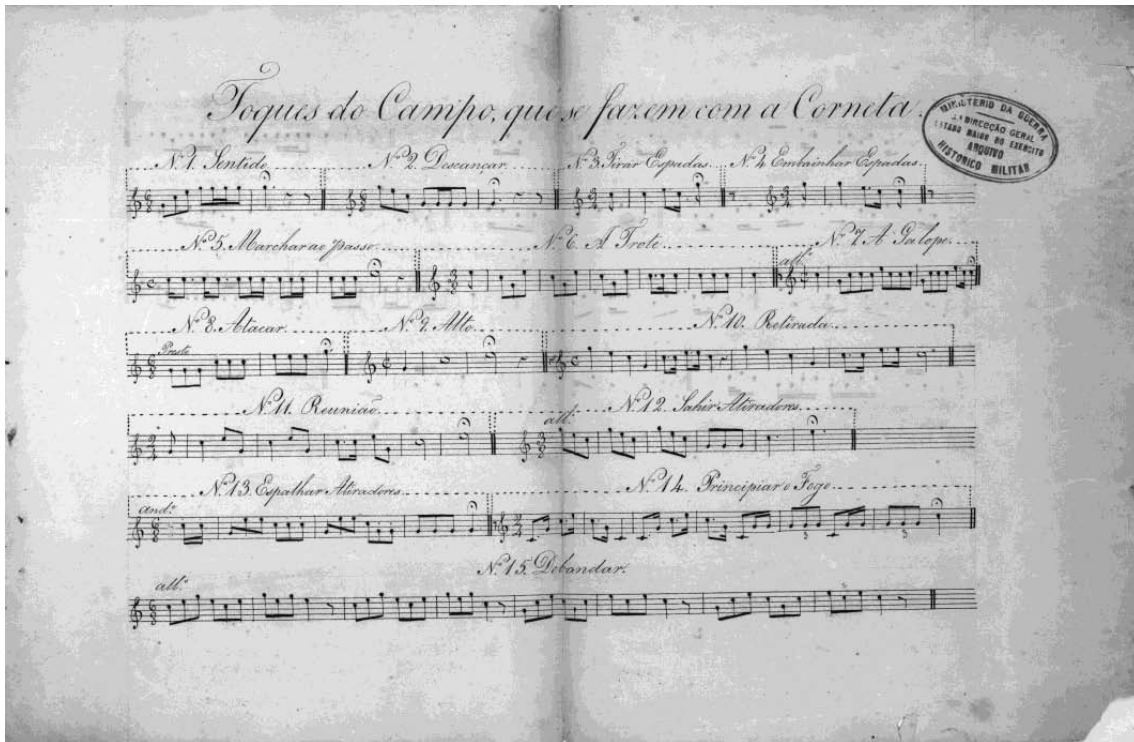 Toques do Campo, que se fazem com a Corneta.
MINISTERIO DA GUERRA
3.A DIRECÇÃO GERAL
ESTADO MAIOR DO EXERCITO
ARQUIVO
HISTORICO MILITAR
Nº 1. Sentido. Nº 2. Descançar. Nº 3. Tirar Espadas. Nº 4. Embainhar Espadas.
Nº 5. Marchar ao passo. Nº 6. A Trote. Nº 7. A Galope.
all.º
Nº 8. Atacar. Nº 9. Alto. Nº 10. Retirada.
Presto
Nº 11. Reunião. Nº 12. Sahir Atiradores.
all.º
Nº 13. Espalhar Atiradores. Nº 14. Principiar o Fogo.
and.º
3 3
Nº 15. Debandar.
all.º